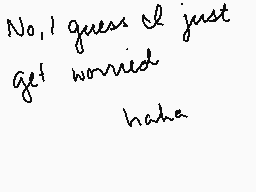 No, I guess I just
get worried
haha